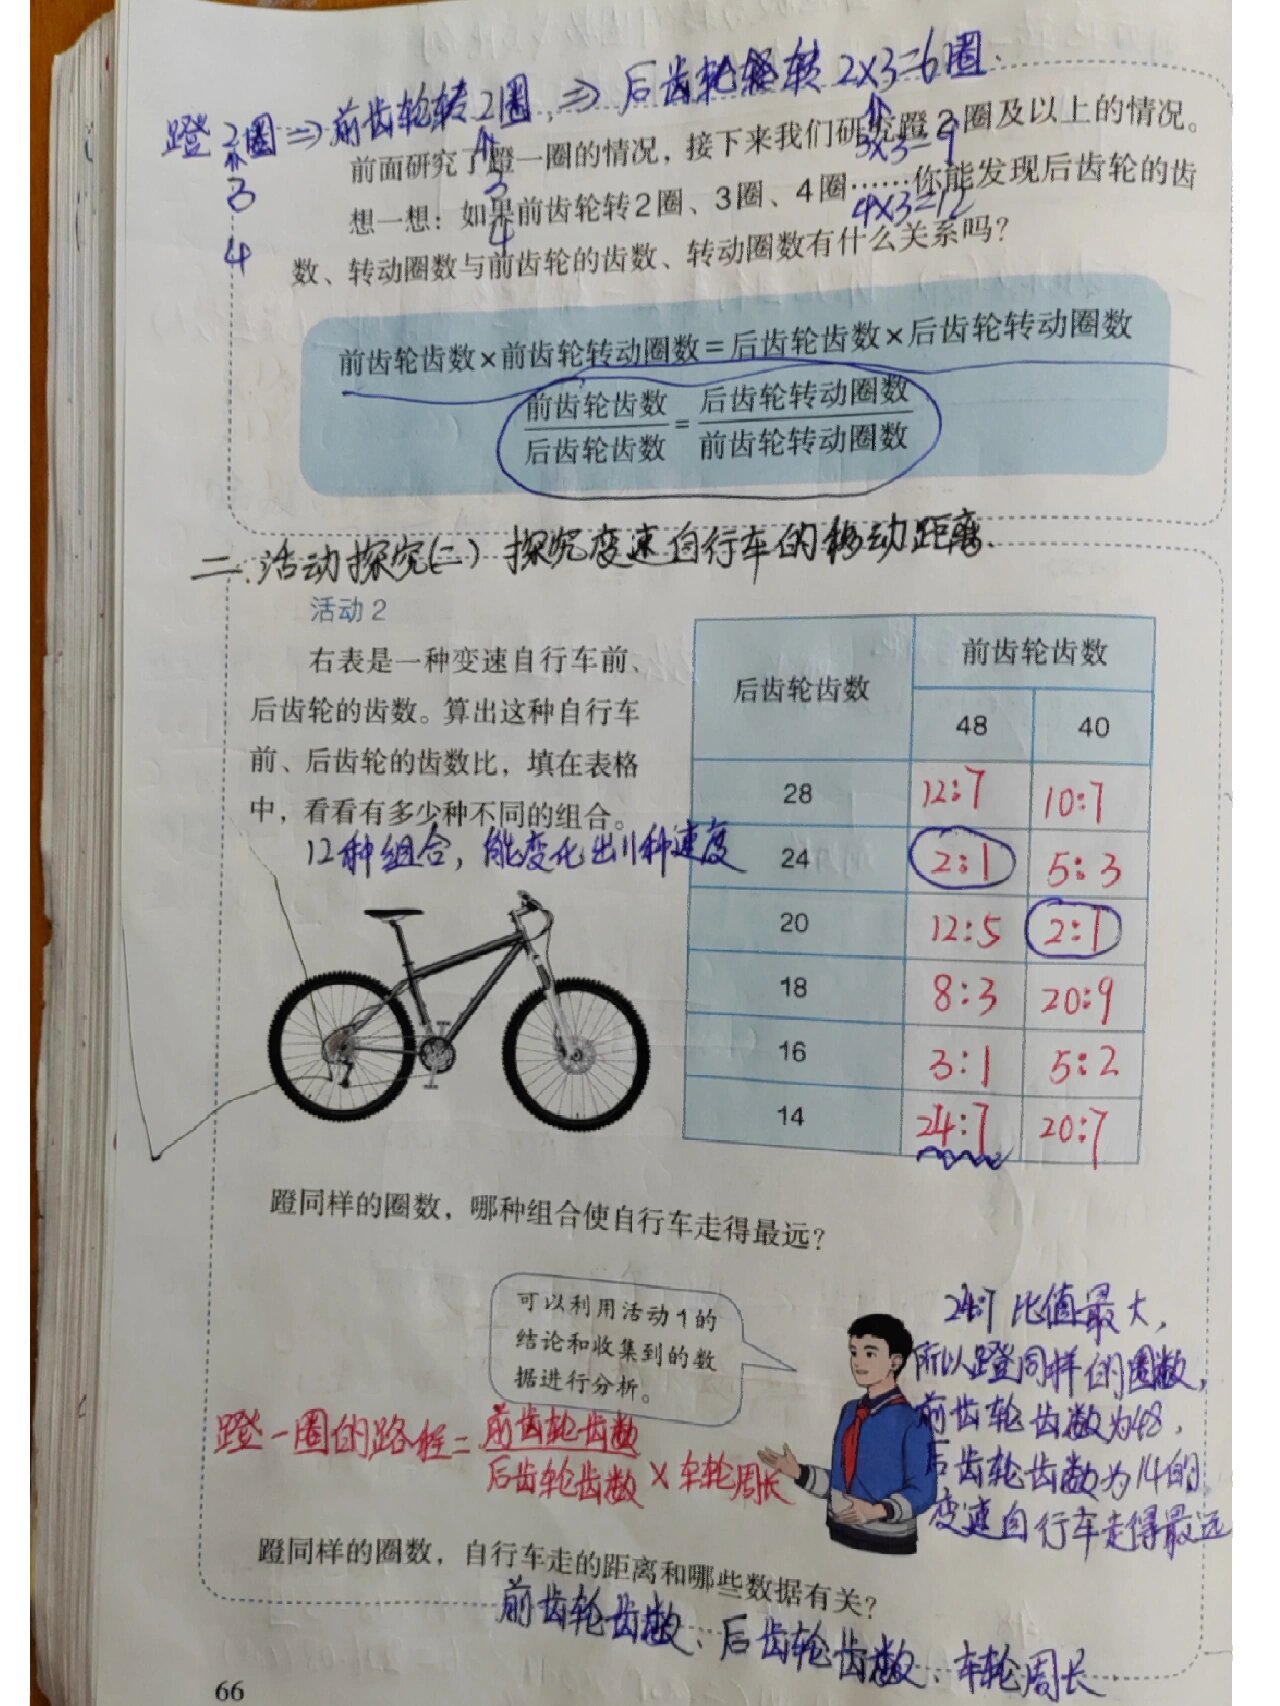 蹬2圈⇒前齿轮转2圈,⇒后齿轮转2×3=6圈.
前面研究了蹬一圈的情况，接下来我们研究蹬2圈及以上的情况。
3
3
3×3=9
想一想：如果前齿轮转2圈、3圈、4圈……你能发现后齿轮的齿
4
4
4×3=12
数、转动圈数与前齿轮的齿数、转动圈数有什么关系吗？
前齿轮齿数×前齿轮转动圈数=后齿轮齿数×后齿轮转动圈数
前齿轮齿数/后齿轮齿数=后齿轮转动圈数/前齿轮转动圈数
二.活动探究(二) 探究变速自行车的移动距离.
活动2
右表是一种变速自行车前、
后齿轮的齿数。算出这种自行车
前、后齿轮的齿数比，填在表格
中，看看有多少种不同的组合。
12种组合，能变化出11种速度
后齿轮齿数 前齿轮齿数
48 40
28 12:7 10:7
24 2:1 5:3
20 12:5 2:1
18 8:3 20:9
16 3:1 5:2
14 24:7 20:7
蹬同样的圈数，哪种组合使自行车走得最远？
可以利用活动1的
结论和收集到的数
据进行分析。
24:7比值最大，
所以蹬同样的圈数，
前齿轮齿数为48，
后齿轮齿数为14的
变速自行车走得最远
蹬一圈的路程=前齿轮齿数/后齿轮齿数×车轮周长
蹬同样的圈数，自行车走的距离和哪些数据有关？
前齿轮齿数、后齿轮齿数、车轮周长
66